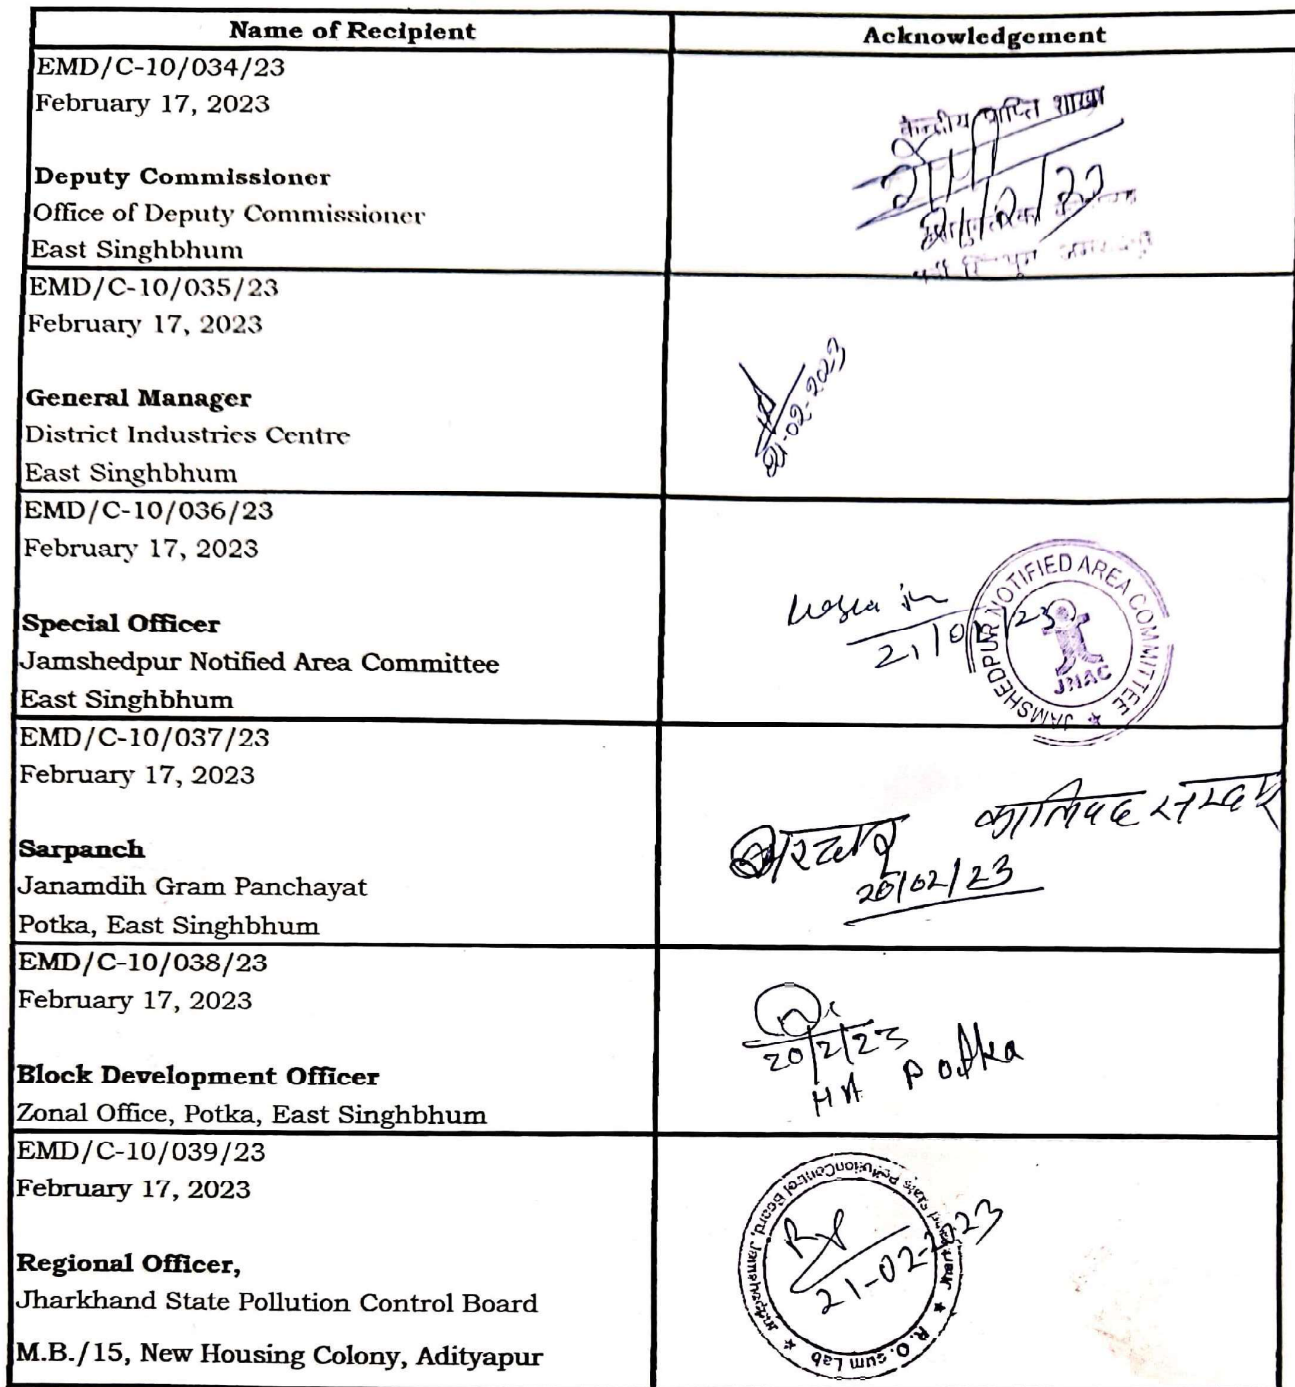 Name of Recipient
Acknowledgement
EMD/C-10/034/23
February 17, 2023
Deputy Commissioner
Office of Deputy Commissioner
East Singhbhum
केन्द्रीय प्राप्ति शाखा
21/2/23
EMD/C-10/035/23
February 17, 2023
General Manager
District Industries Centre
East Singhbhum
21-02-2023
EMD/C-10/036/23
February 17, 2023
Special Officer
Jamshedpur Notified Area Committee
East Singhbhum
21/02/23
JAMSHEDPUR NOTIFIED AREA COMMITTEE
JNAC
EMD/C-10/037/23
February 17, 2023
Sarpanch
Janamdih Gram Panchayat
Potka, East Singhbhum
20/02/23
EMD/C-10/038/23
February 17, 2023
Block Development Officer
Zonal Office, Potka, East Singhbhum
20/2/23
Potka
EMD/C-10/039/23
February 17, 2023
Regional Officer,
Jharkhand State Pollution Control Board
M.B./15, New Housing Colony, Adityapur
21-02-2023
State Pollution Control Board, Jamshedpur
R.O. cum Lab